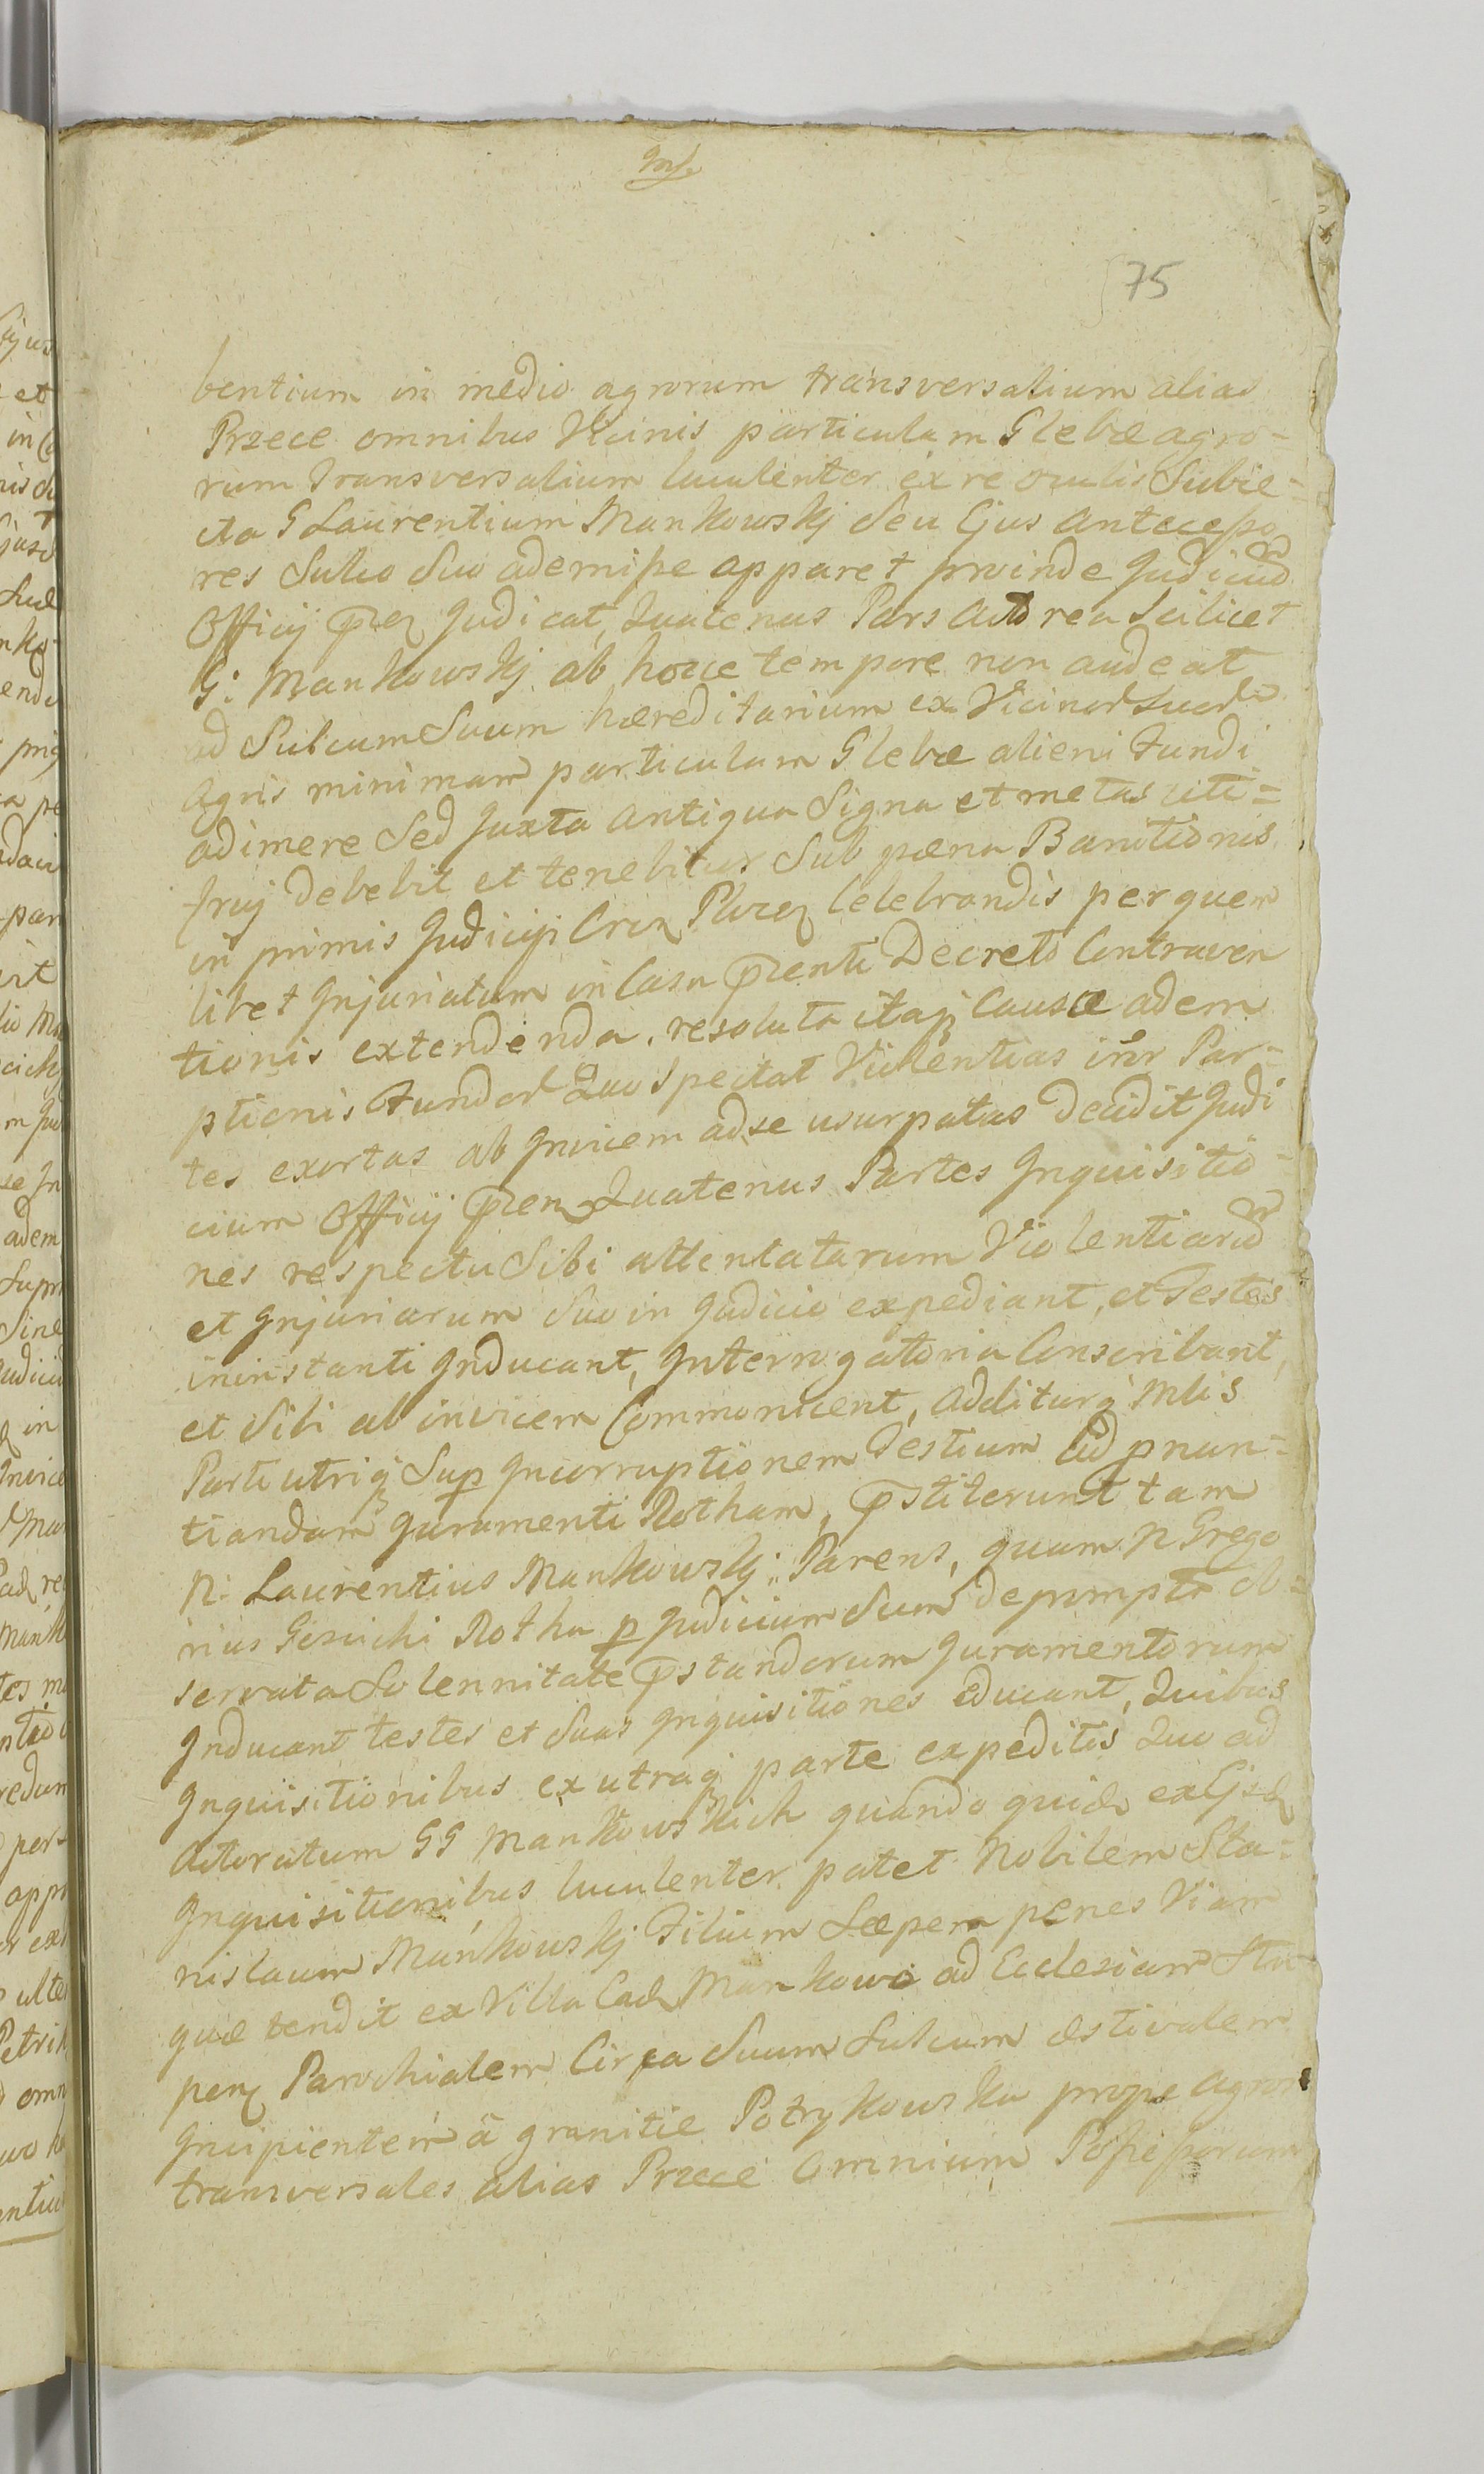 75
bentium in medio agrorum transversalium alias
Przece omnibus Vicinis particulam Glebæ agro=
rum transversalium luculenter ex re oculis Subie=
cta G Laurentium Mankowskj Seu Ejus Antecesso
res Sulco Suo ademisse apparet proinde Judiciū
Officij Judicat, Quatenus Pars Actorea Scilicet
G: Mankowskj ab hocce tempore non audeat
ad Sulcum Suum hæreditarium ex Vicinor Suor
Agris minimam particulam Glebæ alieni Fundi
adimere Sed Juxta Antiqua Signa et metas uti=
fruj debebit et tenebitur Sub pæna Banitionis
in primis Judicijs Celebrandis per quem
libet Injuriatum in Casu Decreti Contraven
tionis extendenda, resoluta itaq Causæ adem
ptionis Fundor Quo spectat Violentias intr Par=
tes exortas ab Invicem ad se usurpatas decidit Judi
cium Officij Quatenus Partes Inquisitio=
nes respectu Sibi attentatarum Violentiarū
et Injuriarum Suo in Judicio expediant, et Testes
in instanti Inducant, Interrogatoria Conscribant,
et Sibi ab invicem Communicent, Additurq
Parti utriq Sup Incorruptionem Testium ad pnun=
tiandam Juramenti Rotham, pstiterunt tam
N: Laurentius Mankowskj Parens, quam N Grego
rius Rotha p Judicium Suum deprompta ob=
servata Solennitate pstandorum Juramentorum
Inducant testes et Suas Inquisitiones educant, Quibus
Inquisitionibus ex utraq parte expeditis Quo ad
Actoratum GG Mankowskich quando quidē ex Ejsd
Inquisitionibus luculenter patet Nobilem Sta=
nislaum Mankowskj Filium Sæpem penes Viam
quæ tendit ex Villa Mankowo ad Ecclesiam Stu
pen Parochialem Circa Suum Sulcum æstivalem
Incipientem à granitie Potrykowska prope agros
transversales alias Przece Omnium Possessorum